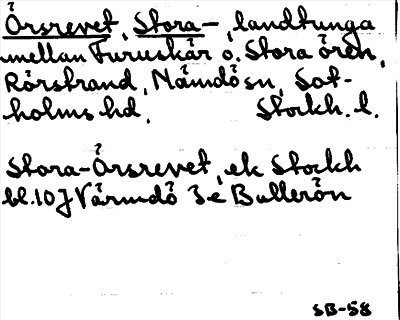 Örsrevet, Stora-, landtunga
mellan Furuskär o. Stora ören,
Rörstrand, Nämdö sn, Sot-
holms hd, Stockh. l.
Stora-Örsrevet, ek Stockh
bl. 10 J Värmdö 3e Bullerön
SB-58